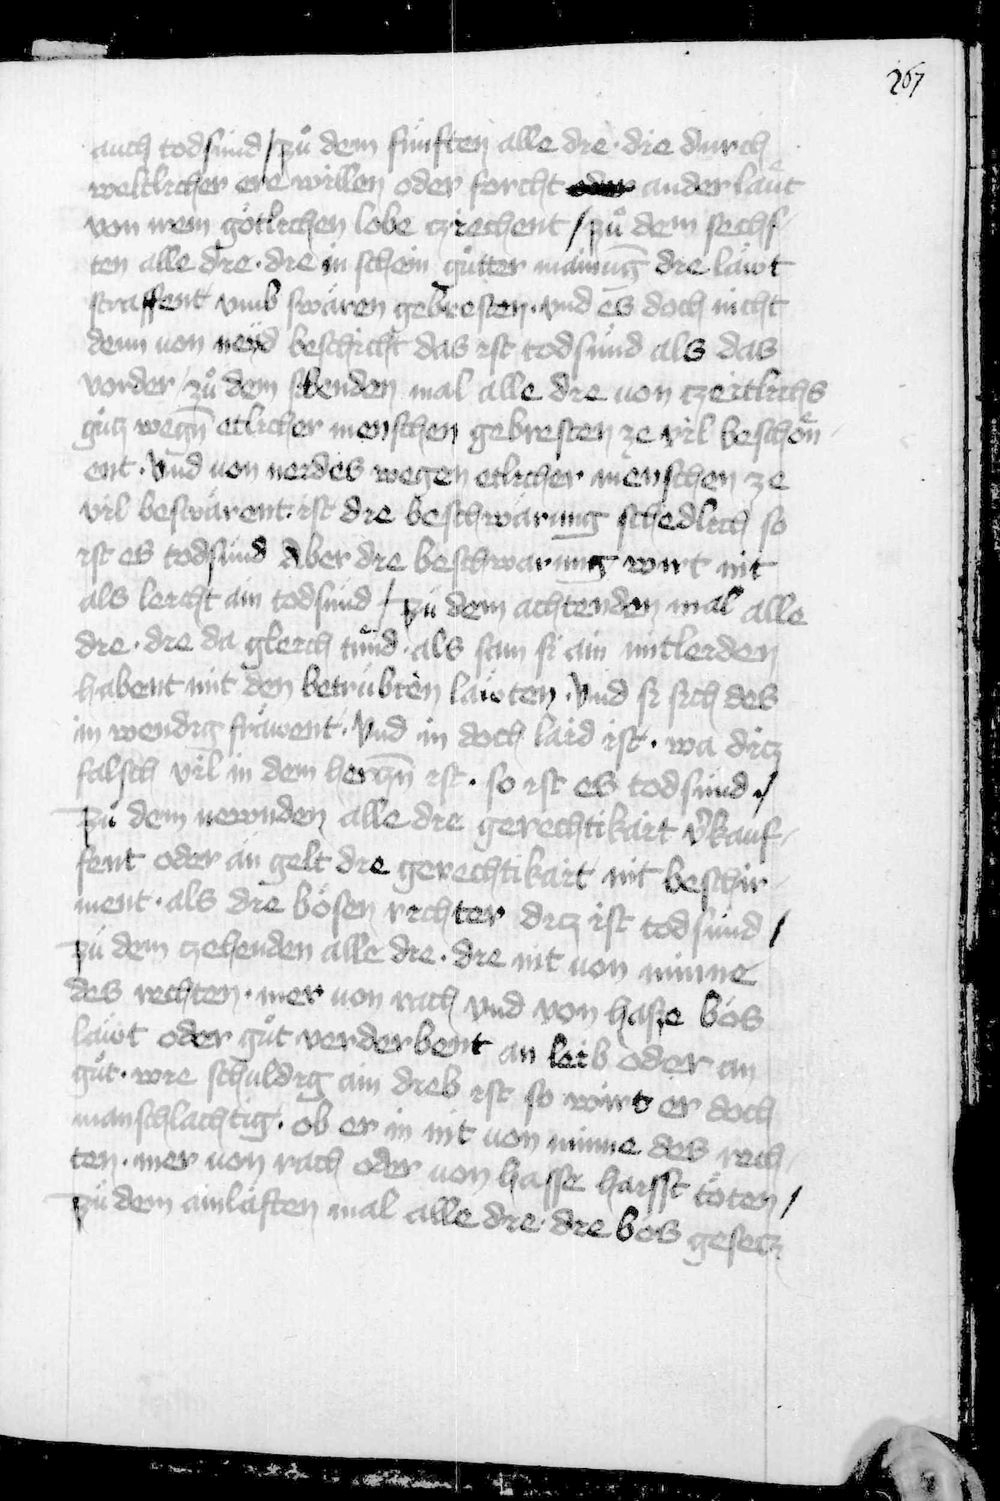 267
auch todsünd / zů dem fünften alle die · die durch
weltlicher ere willen oder forcht ander laüt
von irem götlichen lobe cziechent / zů dem sechs-
ten alle die · die in schein gůtter mainūg die läwt
straffent vmb swären gebresten · vnd es doch nicht
denn von neyd beschicht das ist todsünd als das
vorder / zů dem sibenden mal alle die von czeitlichs
gůtz wegn̄ etlicher menschen gebresten ze vil beschön-
ent · Vnd von neides wegen etlicher menschen ze
vil beswärent · ist die beschwärung schedlich so
ist es todsünd Aber die beschwärung wirt nit
als leicht ain todsünd / zů dem achtenden mal alle
die · die da gleich tůnd · als sam si ain mitleiden
habent mit den betrübten läwten · Vnd si sich des
in wendig fräwent · Vnd in doch laid ist · wa ditz
falsch vil in dem herczn̄ ist · so ist es todsünd · /
zů dem newnden alle die gerechtikait v̄kauf-
fent oder än gelt die gerechtikait nit beschir-
ment · als die bösen richter ditz ist todsünd /
zů dem czehenden alle die · die nit von minne
des rechten · mer von rach vnd von hasse bös
läwt oder gůt verderbent an leib oder an
gůt · wie schuldig ain dieb ist so wirt er doch
manschlachtig · ob er in nit von minne des rech-
ten · mer von rach oder von hasse haisst töten /
zů dem ainläften mal alle die · die bös gesetz